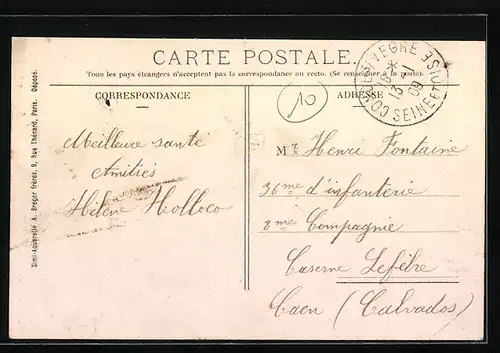 CARTE POSTALE
Tous les pays étrangers n'acceptent pas la correspondance au recto. (Se renseigner à la poste).
CORRESPONDANCE
ADRESSE
10
SEINE ET OISE
13 -1
09
Simili-Aquarelle A. Breger frères, 9, Rue Thénard, Paris. Déposé.
Meilleure santé
Amitiés
Hélène Holloco
Mr Henri Fontaine
36me d'infanterie
8me Compagnie
Caserne Lefèbre
Caen (Calvados)